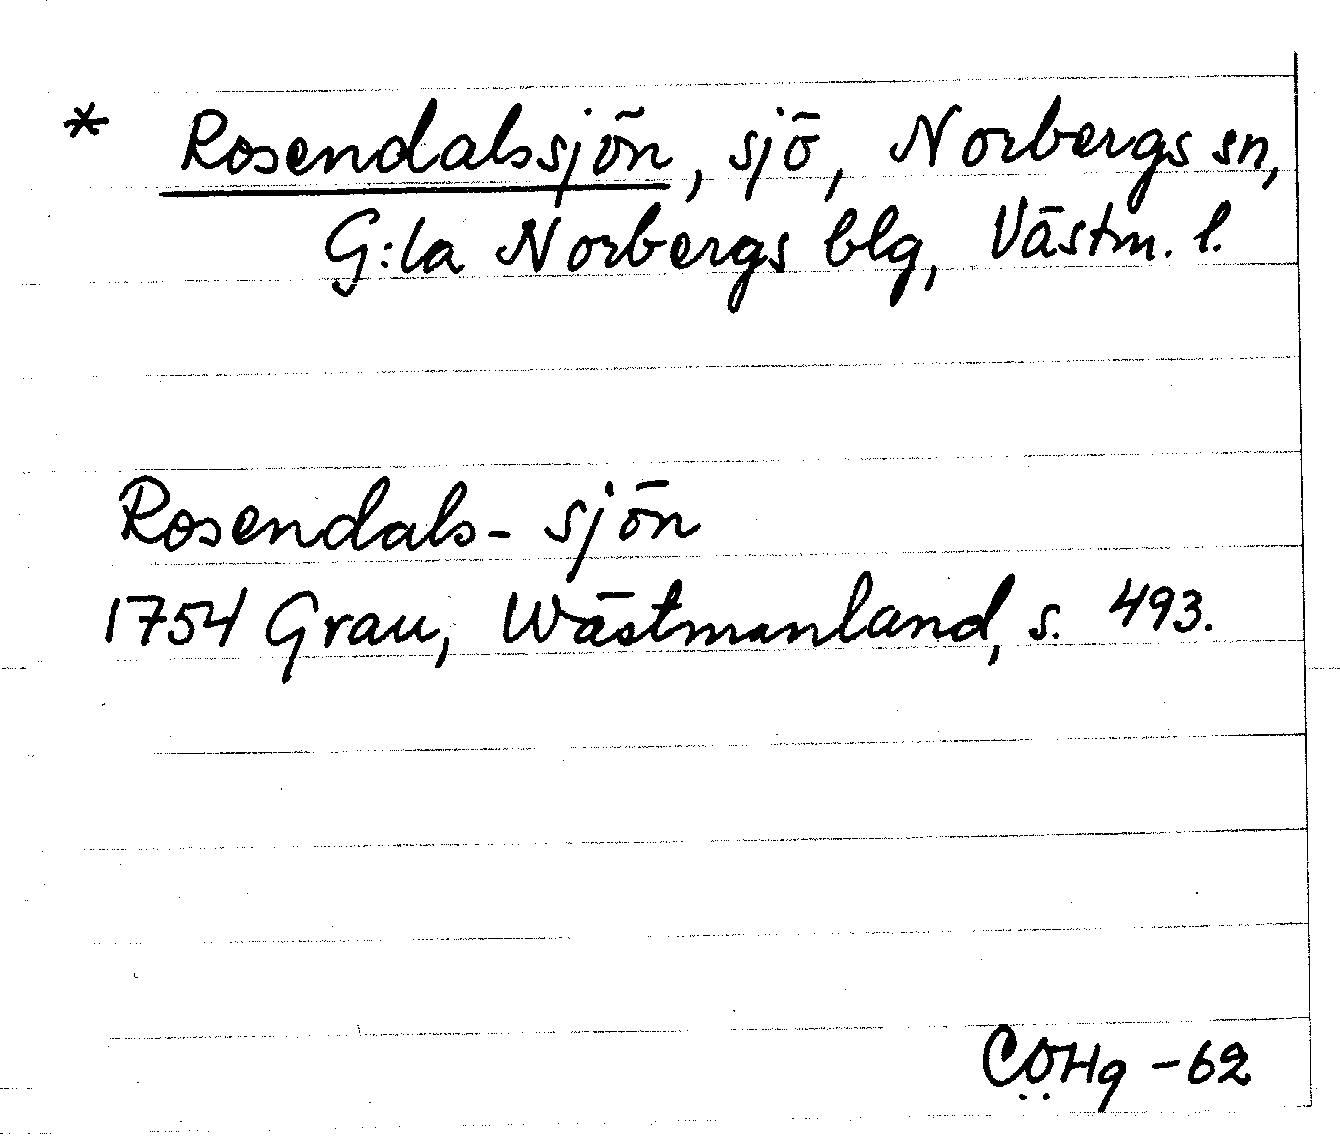 * Rosendalssjön, sjö, Norbergs sn,
G:la Norbergs blg, Västm. l.
Rosendals- sjön
1754 Grau, Wästmanland, s. 493.
CÖHg -62